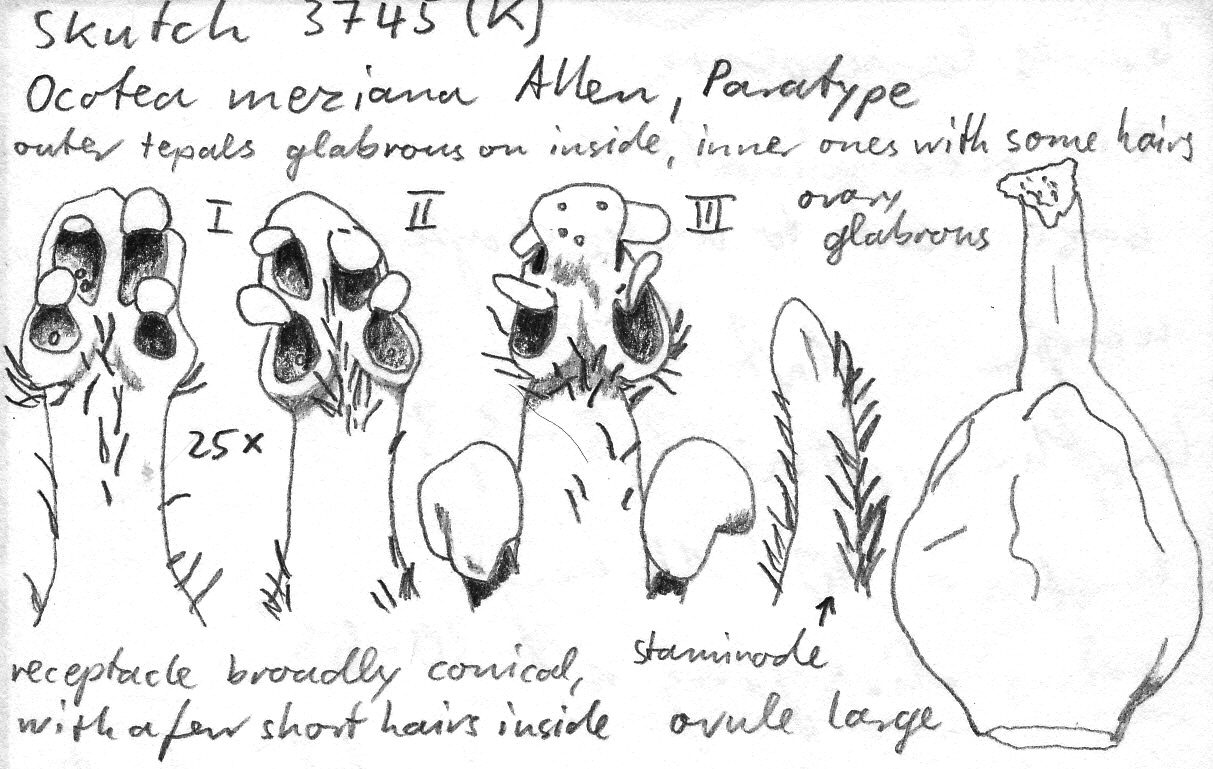 Skutch 3745 (K)
Ocotea meziana Allen, Paratype
outer tepals glabrous on inside, inner ones with some hairs
I II III
ovary
glabrous
25x
staminode
receptacle broadly conical,
with a few short hairs inside
ovule large